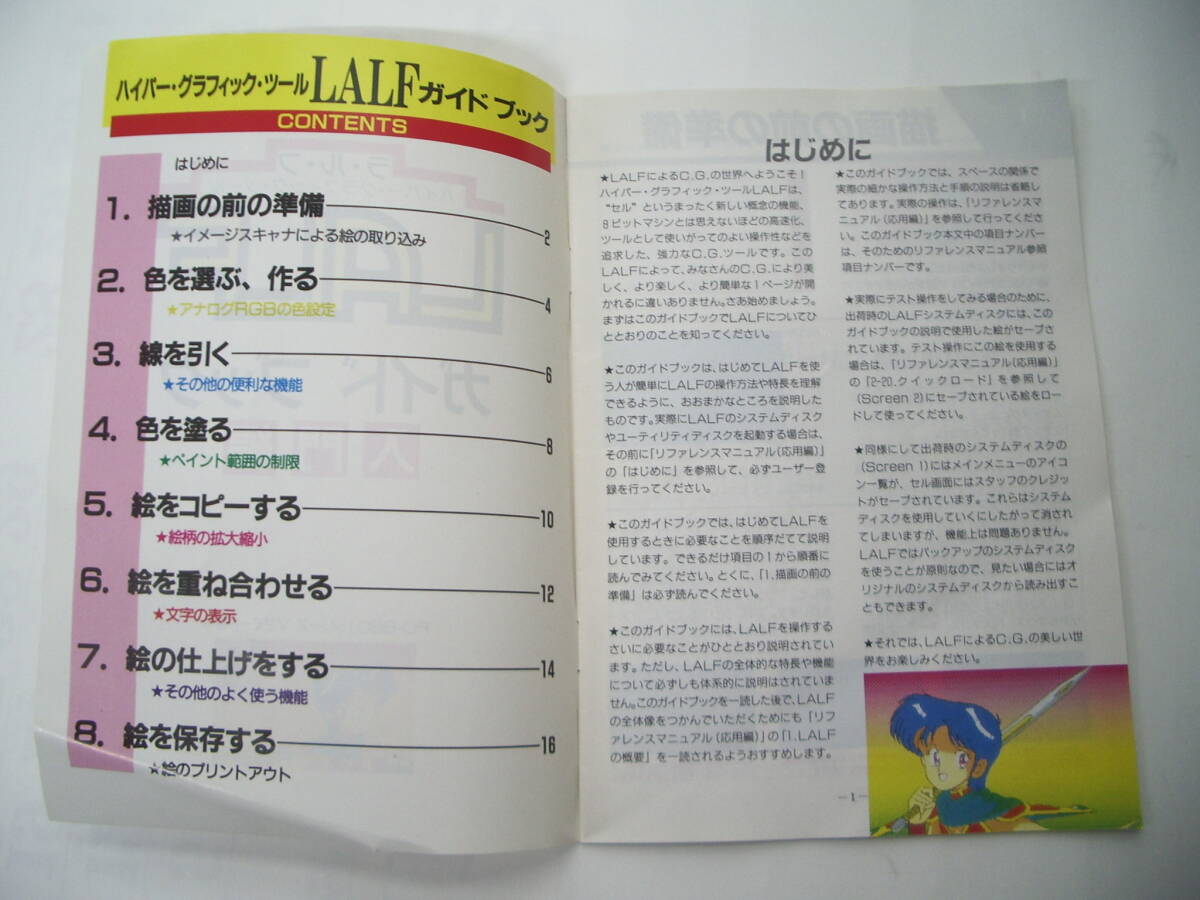 ハイパー・グラフィック・ツールLALFガイドブック
CONTENTS
はじめに
1. 描画の前の準備 2
★イメージスキャナによる絵の取り込み
2. 色を選ぶ、作る 4
★アナログRGBの色設定
3. 線を引く 6
★その他の便利な機能
4. 色を塗る 8
★ペイント範囲の制限
5. 絵をコピーする 10
★絵柄の拡大縮小
6. 絵を重ね合わせる 12
★文字の表示
7. 絵の仕上げをする 14
★その他のよく使う機能
8. 絵を保存する 16
★絵のプリントアウト
はじめに
★LALFによるC.G.の世界へようこそ!
ハイパー・グラフィック・ツールLALFは、
“セル”というまったく新しい概念の機能、
8ビットマシンとは思えないほどの高速化、
ツールとして使いがってのよい操作性などを
追求した、強力なC.G.ツールです。この
LALFによって、みなさんのC.G.により美
しく、より楽しく、より簡単な1ページが開
かれるに違いありません。さあ始めましょう。
まずはこのガイドブックでLALFについてひ
ととおりのことを知ってください。
★このガイドブックは、はじめてLALFを使
う人が簡単にLALFの操作方法や特長を理解
できるように、おおまかなところを説明した
ものです。実際にLALFのシステムディスク
やユーティリティディスクを起動する場合は、
その前に「リファレンスマニュアル(応用編)」
の「はじめに」を参照して、必ずユーザー登
録を行ってください。
★このガイドブックでは、はじめてLALFを
使用するときに必要なことを順序だてて説明
しています。できるだけ項目の1から順番に
読んでみてください。とくに、「1.描画の前の
準備」は必ず読んでください。
★このガイドブックには、LALFを操作する
さいに必要なことがひととおり説明されてい
ます。ただし、LALFの全体的な特長や機能
について必ずしも体系的に説明はされていま
せん。このガイドブックを一読した後で、LALF
の全体像をつかんでいただくためにも「リフ
ァレンスマニュアル(応用編)」の「1.LALF
の概要」を一読されるようおすすめします。
★このガイドブックでは、スペースの関係で
実際の細かな操作方法と手順の説明は省略し
てあります。実際の操作は、「リファレンスマ
ニュアル(応用編)」を参照して行ってくださ
い。このガイドブック本文中の項目ナンバー
は、そのためのリファレンスマニュアル参照
項目ナンバーです。
★実際にテスト操作をしてみる場合のために、
出荷時のLALFシステムディスクには、この
ガイドブックの説明で使用した絵がセーブさ
れています。テスト操作にこの絵を使用する
場合は、「リファレンスマニュアル(応用編)」
の「2-20.クイックロード」を参照して
(Screen 2)にセーブされている絵をロー
ドして使ってください。
★同様にして出荷時のシステムディスクの
(Screen 1)にはメインメニューのアイコ
ン一覧が、セル画面にはスタッフのクレジッ
トがセーブされています。これらはシステム
ディスクを使用していくにしたがって消され
てしまいますが、機能上は問題ありません。
LALFではバックアップのシステムディスク
を使うことが原則なので、見たい場合にはオ
リジナルのシステムディスクから読み出すこ
ともできます。
★それでは、LALFによるC.G.の美しい世
界をお楽しみください。
―1―